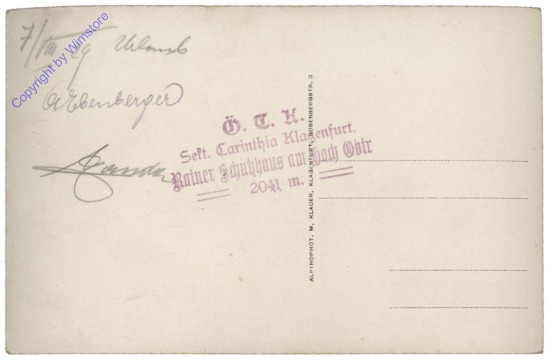 7/VIII 29 Urlaub
A Ebenberger
Ö. T. K.
Sekt. Carinthia Klagenfurt.
Rainer Schutzhaus am Hoch Obir
2041 m.
ALPINOPHOT. M. KLAUER, KLAGENFURT, ROSENBERGSTR. 3
Copyright by Wimstore